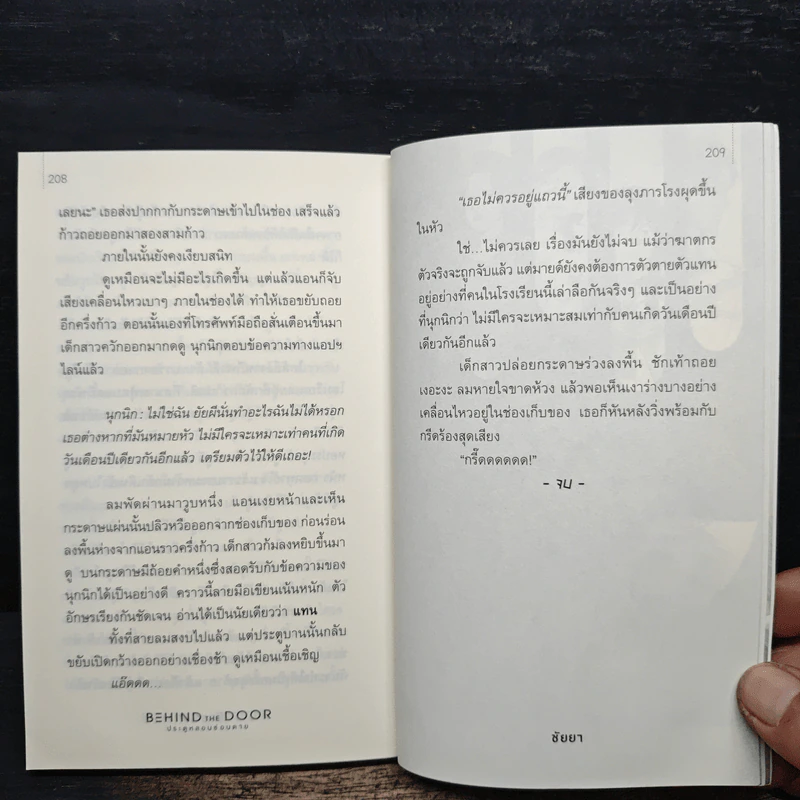 208
เลยนะ" เธอส่งปากกากับกระดาษเข้าไปในช่อง เสร็จแล้ว
ก้าวถอยออกมาสองสามก้าว
ภายในนั้นยังคงเงียบสนิท
ดูเหมือนจะไม่มีอะไรเกิดขึ้น แต่แล้วแอนก็จับ
เสียงเคลื่อนไหวเบาๆ ภายในช่องได้ ทำให้เธอขยับถอย
อีกครึ่งก้าว ตอนนั้นเองที่โทรศัพท์มือถือสั่นเตือนขึ้นมา
เด็กสาวควักออกมากดดู นุกนิกตอบข้อความทางแอปฯ
ไลน์แล้ว
นุกนิก : ไม่ใช่ฉัน ยัยผีนั่นทำอะไรฉันไม่ได้หรอก
เธอต่างหากที่มันหมายหัว ไม่มีใครจะเหมาะเท่าคนที่เกิด
วันเดือนปีเดียวกันอีกแล้ว เตรียมตัวไว้ให้ดีเถอะ!
ลมพัดผ่านมาวูบหนึ่ง แอนเงยหน้าและเห็น
กระดาษแผ่นนั้นปลิวหวือออกจากช่องเก็บของ ก่อนร่อน
ลงพื้นห่างจากแอนราวครึ่งก้าว เด็กสาวก้มลงหยิบขึ้นมา
ดู บนกระดาษมีถ้อยคำหนึ่งซึ่งสอดรับกับข้อความของ
นุกนิกได้เป็นอย่างดี คราวนี้ลายมือเขียนเน้นหนัก ตัว
อักษรเรียงกันชัดเจน อ่านได้เป็นนัยเดียวว่า แทน
ทั้งที่สายลมสงบไปแล้ว แต่ประตูบานนั้นกลับ
ขยับเปิดกว้างออกอย่างเชื่องช้า ดูเหมือนเชื้อเชิญ
แอ๊ดดด...
BEHIND THE DOOR
ประตูหลอนซ่อนตาย
209
"เธอไม่ควรอยู่แถวนี้" เสียงของลุงภารโรงผุดขึ้น
ในหัว
ใช่...ไม่ควรเลย เรื่องมันยังไม่จบ แม้ว่าฆาตกร
ตัวจริงจะถูกจับแล้ว แต่มายด์ยังคงต้องการตัวตายตัวแทน
อยู่อย่างที่คนในโรงเรียนนี้เล่าลือกันจริงๆ และเป็นอย่าง
ที่นุกนิกว่า ไม่มีใครจะเหมาะสมเท่ากับคนเกิดวันเดือนปี
เดียวกันอีกแล้ว
เด็กสาวปล่อยกระดาษร่วงลงพื้น ชักเท้าถอย
เงอะงะ ลมหายใจขาดห้วง แล้วพอเห็นเงาร่างบางอย่าง
เคลื่อนไหวอยู่ในช่องเก็บของ เธอก็หันหลังวิ่งพร้อมกับ
กรีดร้องสุดเสียง
"กรี๊ดดดดดด!"
- จบ -
ชัยยา